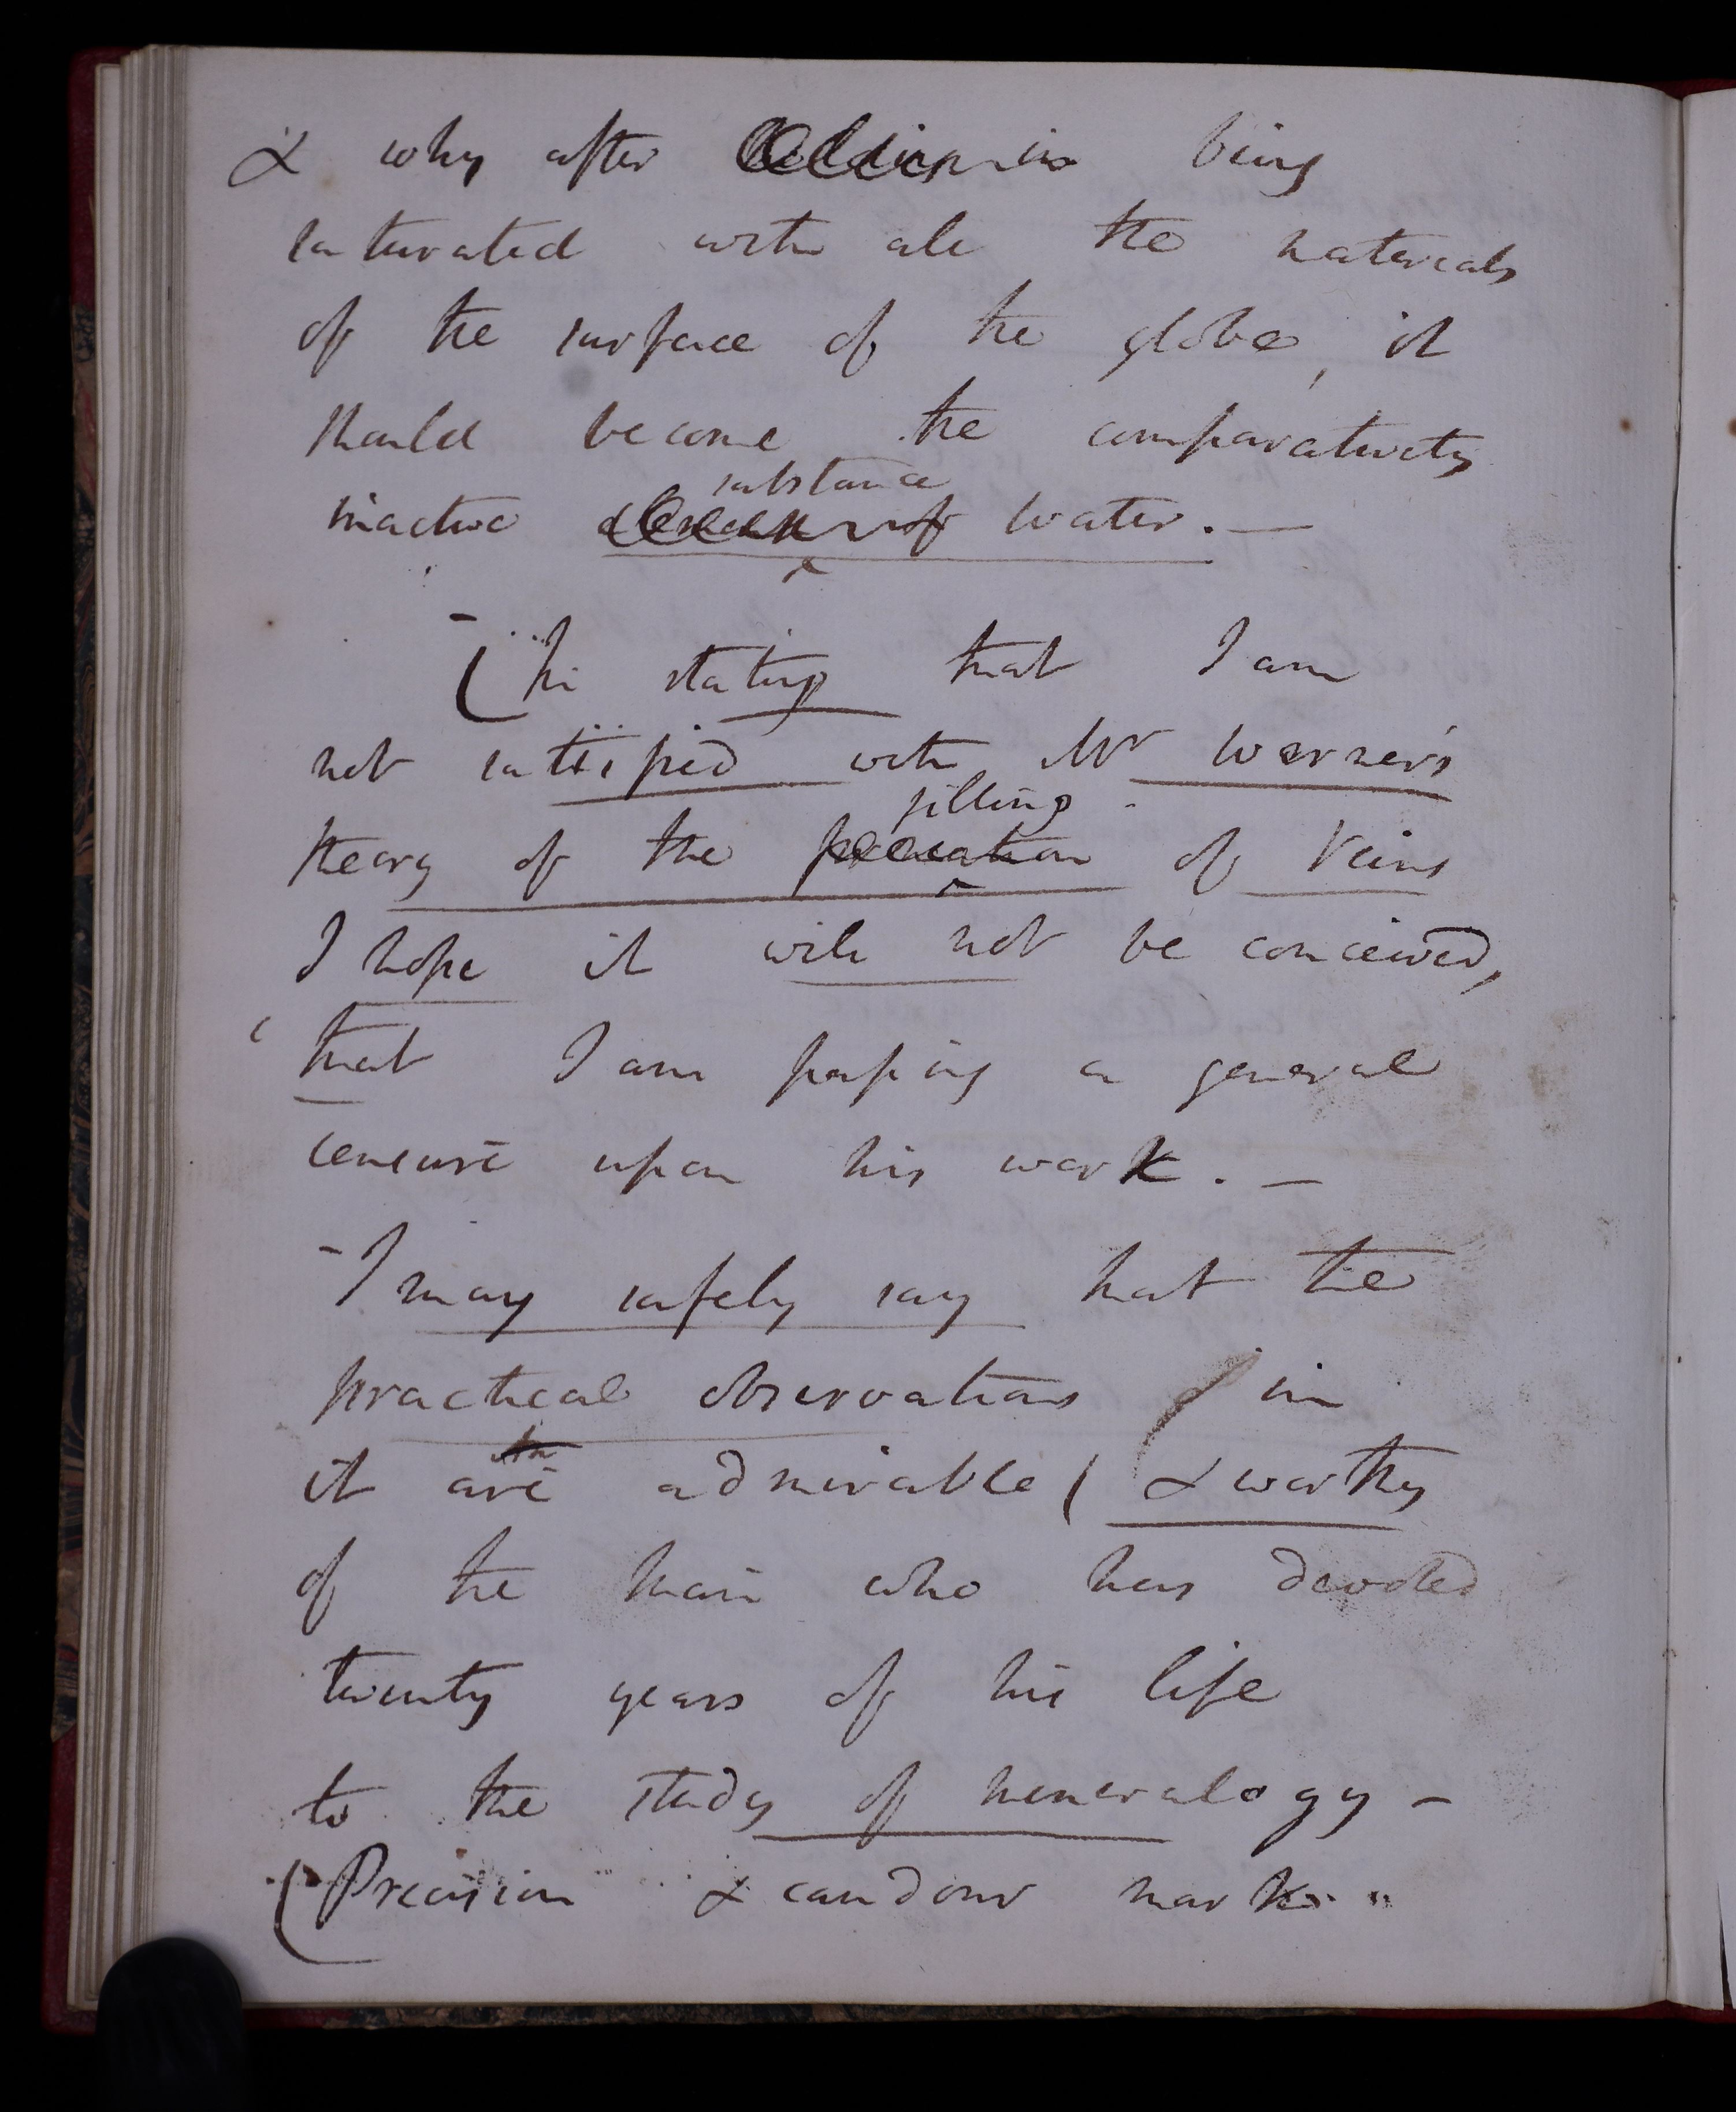 & why after being
saturated with all the materials
of the surface of the globe, it
should become the comparatively
substance
inactive of water. —
(In stating that I am
not satisfied with Mr Werner's
filling
theory of the of Veins
I hope it will not be conceived,
that I am passing a general
censure upon his work. —
- I may safely say that the
practical observations in
it are admirable ( & worthy
of the man who has devoted
twenty years of his life
to the study of mineralogy -
(Precision & candour mark